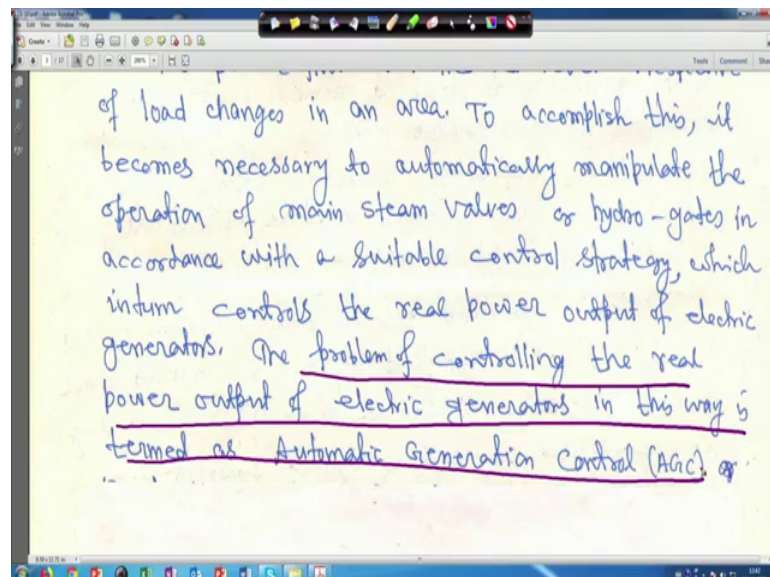 File Edit View Window Help
Create
1 / 17
200%
Tools Comment Share
of load changes in an area. To accomplish this, it
becomes necessary to automatically manipulate the
operation of main steam valves or hydro-gates in
accordance with a suitable control strategy, which
inturn controls the real power output of electric
generators. The problem of controlling the real
power output of electric generators in this way is
termed as Automatic Generation Control (AGC). or
8.50 x 11.71 in